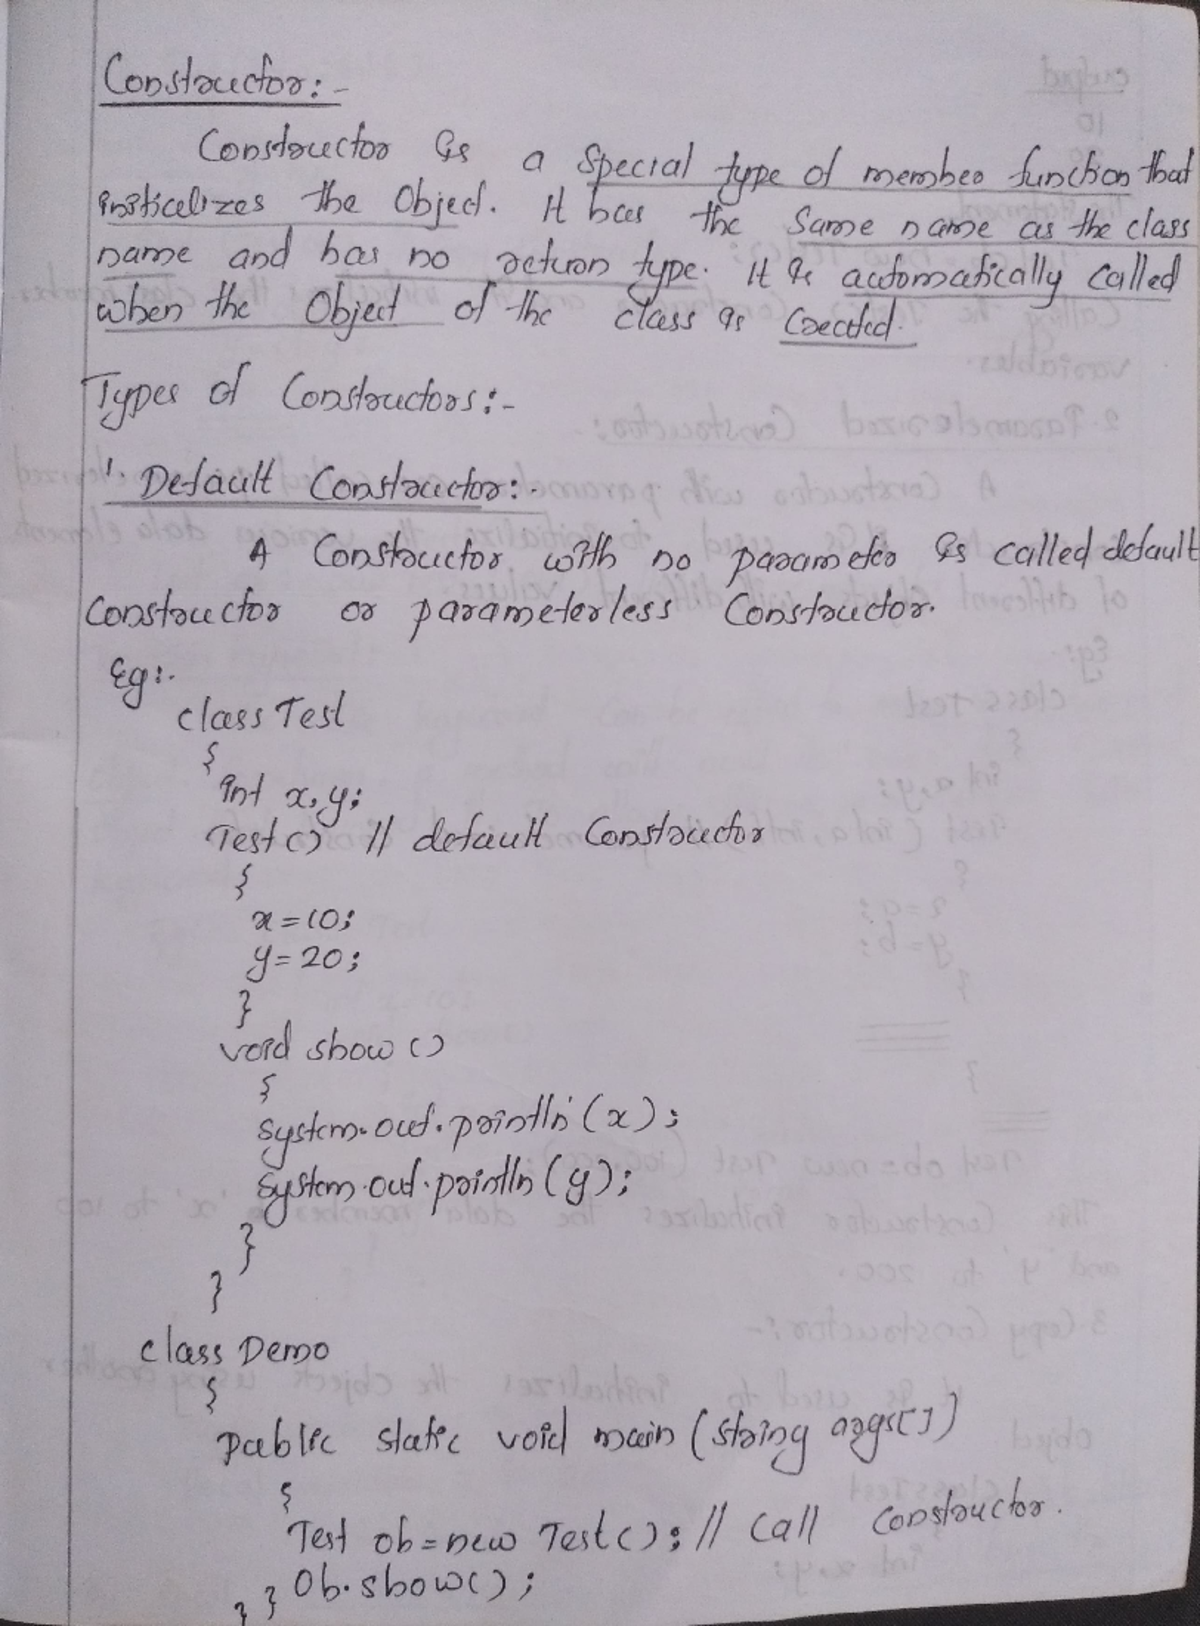 Constructor:-
Constructor is a special type of member function that
initializes the Object. It has the Same name as the class
name and has no return type. It is automatically called
when the Object of the class is Created.
Types of Constructors:-
1. Default Constructor:-
A Constructor with no parameter is called default
Constructor or parameterless Constructor.
Eg:-
class Test
{
int x,y;
Test() // default Constructor
{
x=10;
y=20;
}
void show()
{
System.out.println(x);
System.out.println(y);
}
}
class Demo
{
public static void main(string args[])
{
Test ob=new Test(); // Call Constructor.
Ob.show();
} }